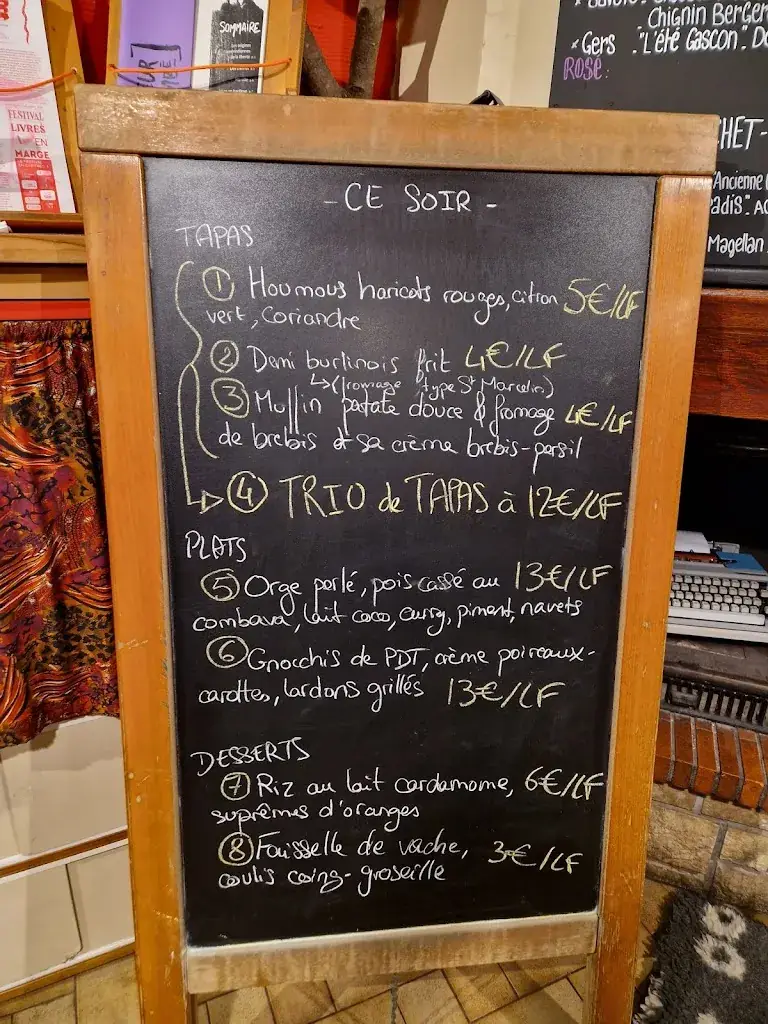 SOMMAIRE
FESTIVAL
LIVRES
EN
MARGE
Chignin Berger
* Gers - "L'été Gascon". D
ROSÉ:
HET-
Ancienne
adis". A
Magellan
- CE SOIR -
TAPAS
① Houmous haricots rouges, citron 5€/LF
vert, coriandre
② Demi burlinois frit 4€/LF
↳ (fromage type St Marcelin)
③ Muffin patate douce & fromage 4€/LF
de brebis et sa crème brebis-persil
④ TRIO de TAPAS à 12€/LF
PLATS
⑤ Orge perlé, pois cassé au 13€/LF
combava, lait coco, curry, piment, navets
⑥ Gnocchis de PDT, crème poireaux-
carottes, lardons grillés 13€/LF
DESSERTS
⑦ Riz au lait cardamome, 6€/LF
suprêmes d'oranges
⑧ Faisselle de vache, 3€/LF
coulis coing-groseille